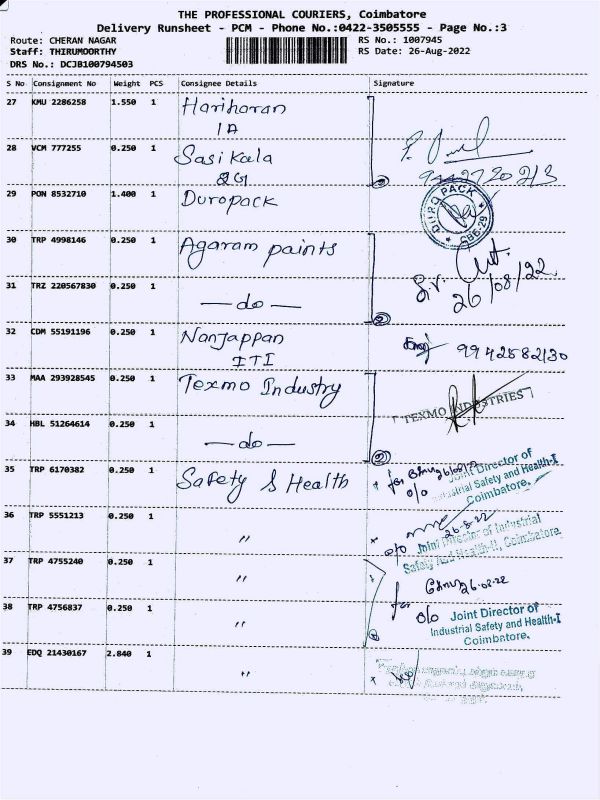 THE PROFESSIONAL COURIERS, Coimbatore
Delivery Runsheet - PCM - Phone No.:0422-3505555 - Page No.:3
Route: CHERAN NAGAR
RS No.: 1007945
Staff: THIRUMOORTHY
RS Date: 26-Aug-2022
DRS No.: DCJB100794503
S No Consignment No Weight PCS Consignee Details Signature
27 KMU 2286258 1.550 1 Hariharan
IA
28 VCM 777255 0.250 1 Sasikala
29 PON 8532710 1.400 1 Duropack
DURO PACK
CBE-29
30 TRP 4998146 0.250 1 Agaram paints
26/08/22
31 TRZ 220567830 0.250 1 — do —
32 CDM 55191196 0.250 1 Nanjappan 9942582130
ITI
33 MAA 293928545 0.250 1 Texmo Industry
TEXMO INDUSTRIES
34 HBL 51264614 0.250 1 — do —
35 TRP 6170382 0.250 1 Safety & Health
for
o/o Joint Director of
Industrial Safety and Health-I
Coimbatore.
36 TRP 5551213 0.250 1 "
26-8-22
o/o Joint Director of Industrial
Safety And Health-II, Coimbatore.
37 TRP 4755240 0.250 1 "
26-08-22
38 TRP 4756837 0.250 1 "
for
o/o Joint Director of
Industrial Safety and Health-I
Coimbatore.
39 EDQ 21430167 2.840 1 "